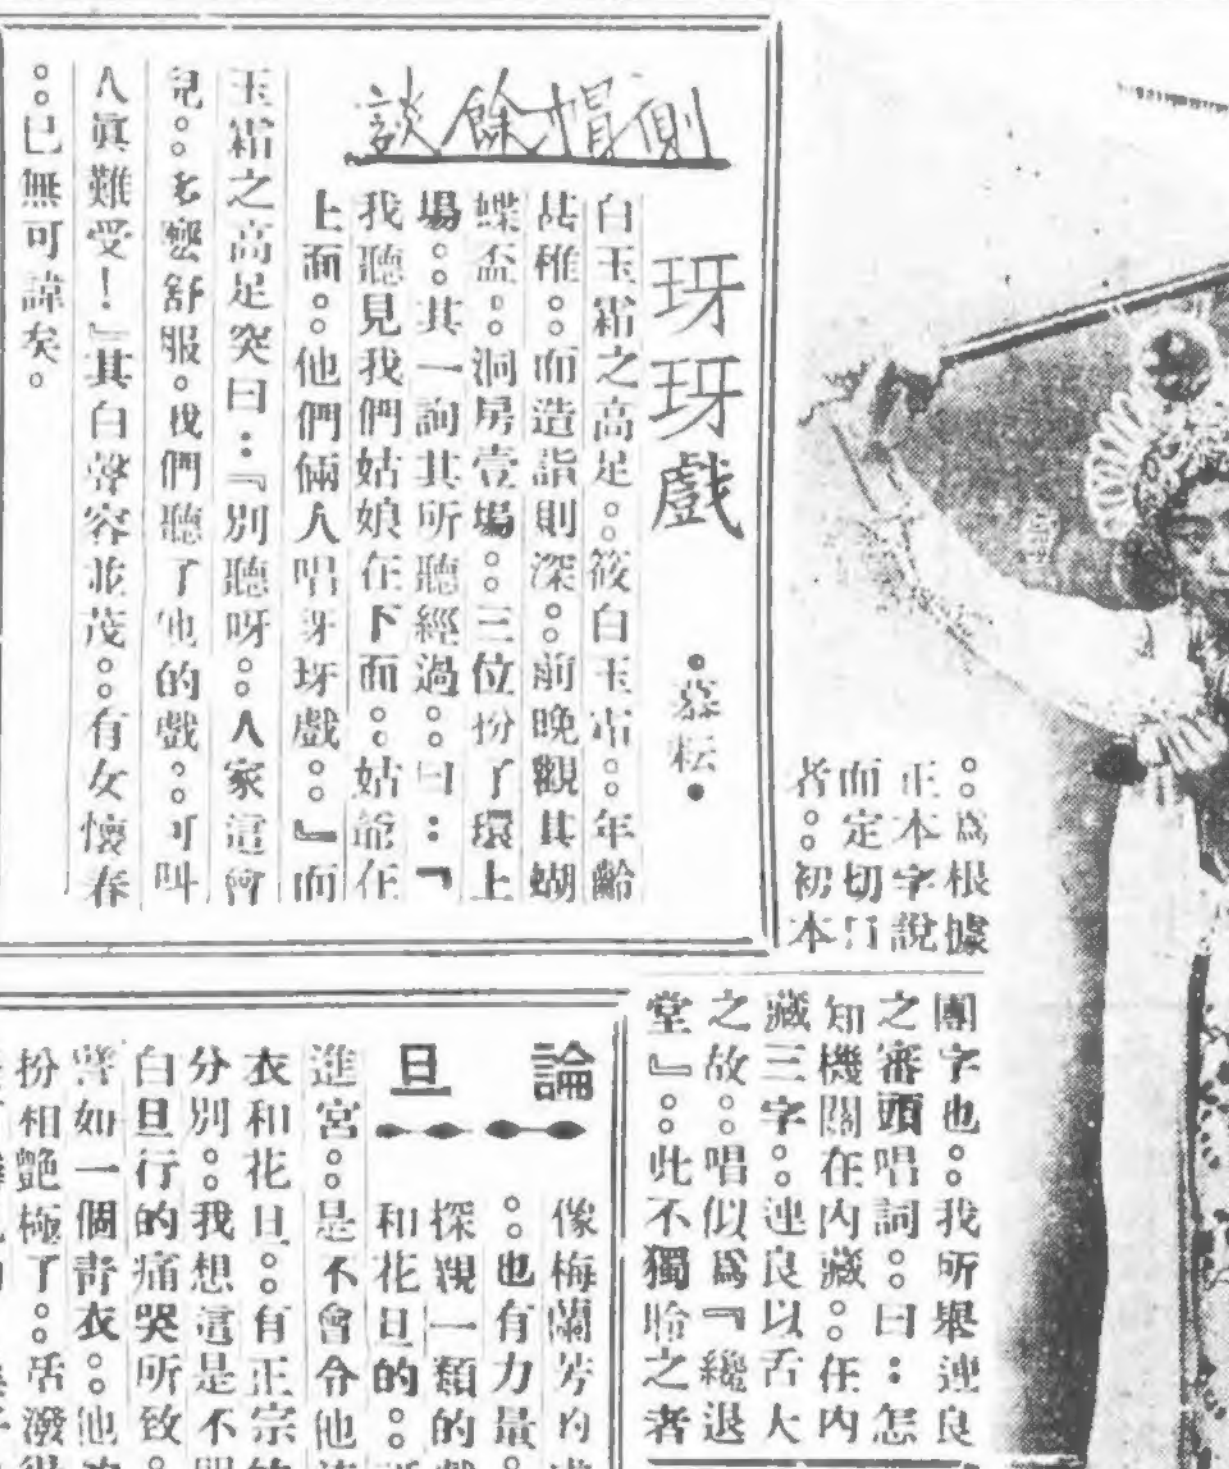 側帽餘談
玡玡戲
白玉霜之高足。。筱白玉霜。。年齡
甚稚。。而造詣則深。。前晚觀其蝴
蝶盃。。洞房壹場。。三位扮了環上
場。。其一詢其所聽經過。。曰：『
我聽見我們姑娘在下面。。姑爺在
上面。。他們倆人唱玡玡戲。。』而
玉霜之高足突曰：『別聽呀。。人家這會
兒。。多麼舒服。我們聽了他的戲。。可叫
人眞難受！』其白聲容並茂。。有女懷春
。。已無可諱矣。
。。爲根據
正本字說
而定切
者。。初本
團字也。。我所舉連良
之審頭唱詞。。曰：怎
知機關在內藏。。在內
藏三字。。連良以舌大
之故。。唱似爲『纔退
堂』。。此不獨聆之者
論旦
像梅蘭芳的
。。也有力量。
探親一類的戲
和花旦的。。
進宮。。是不會令他
衣和花旦。。有正宗
分別。。我想這是不
白旦行的痛哭所致。
譬如一個靑衣。。他
扮相艷極了。。活潑